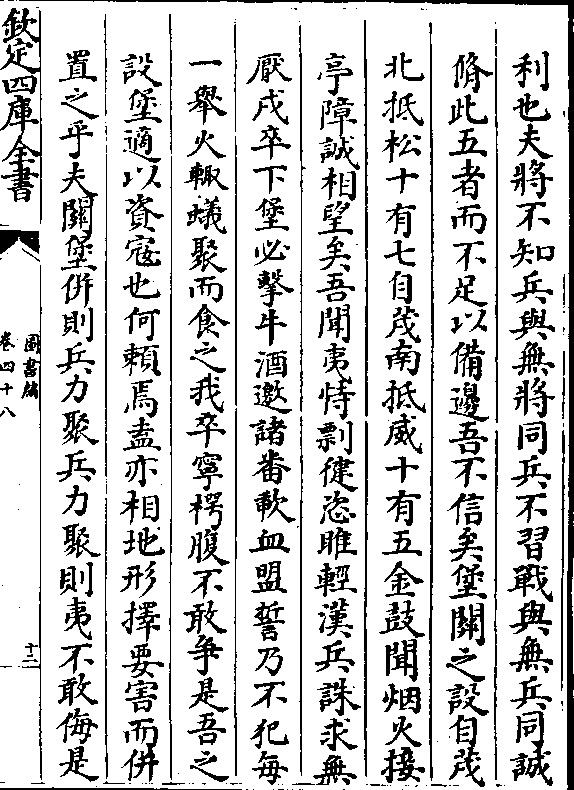 利也夫將不知兵與無將同兵不習戰與無兵同誠
脩此五者而不足以備邊吾不信矣堡關之設自茂
北抵松十有七自茂南抵威十有五金鼓聞烟火接
亭障誠相望矣吾聞夷恃剽健恣睢輕漢兵誅求無
厭戍卒下堡必擊牛酒邀諸畨歃血盟誓乃不犯每
一舉火輙蟻聚而食之我卒寧枵腹不敢爭是吾之
設堡適以資寇也何賴焉盍亦相地形擇要害而併
置之乎夫關堡併則兵力聚兵力聚則夷不敢侮是
欽定四庫全書
圖書編
卷四十八
十二